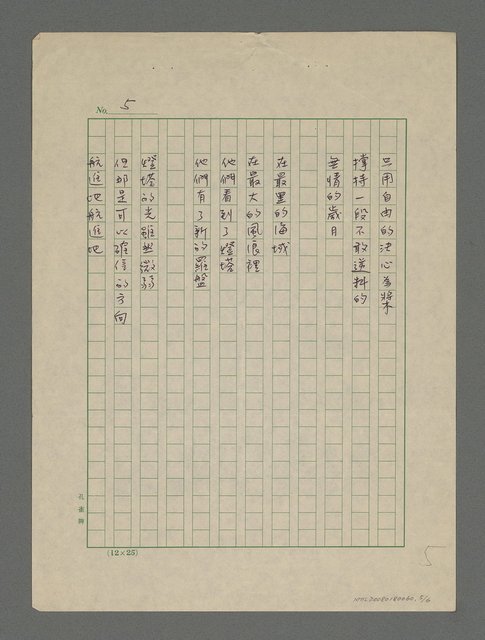 No. 5
只用自由的決心為槳
撐持一段不敢逆料的
無情的歲月
在最黑的海域
在最大的風浪裡
他們看到了燈塔
他們有了新的羅盤
燈塔的光雖然微弱
但那是可以確信的方向
航進吧航進吧
孔雀牌
(12×25)
5